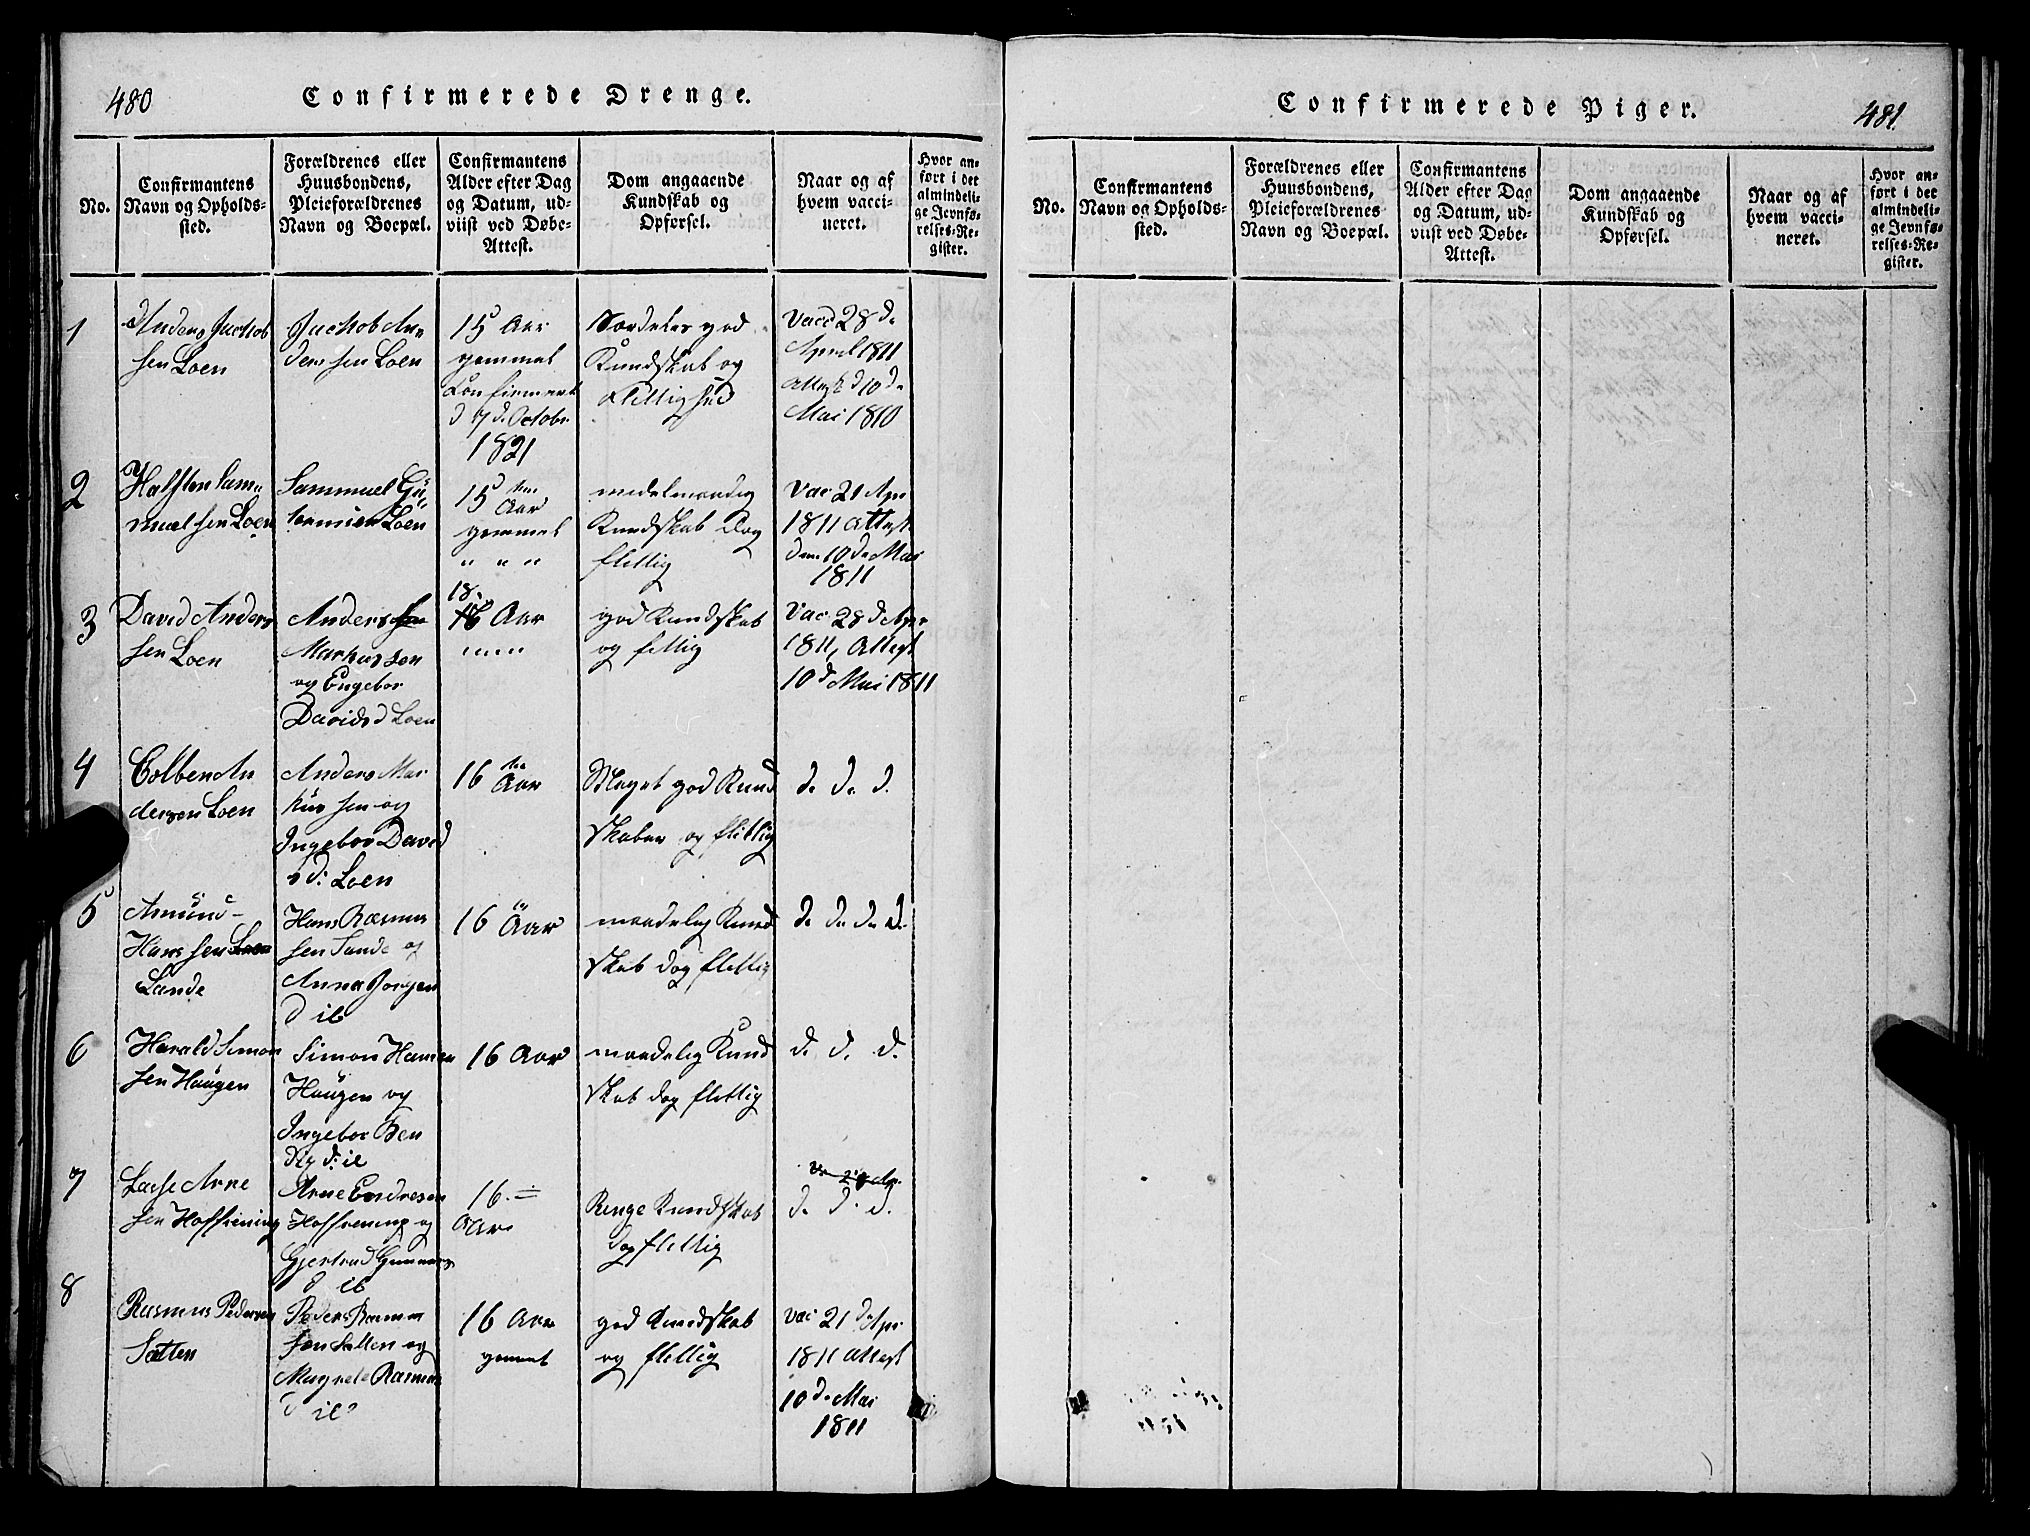 480
Confirmerede Drenge.
No.
Confirmantens
Navn og Opholds-
sted.
Forældrenes eller
Huusbondens,
Pleieforældrenes
Navn og Boepæl.
Confirmantens
Alder efter Dag
og Datum, ud-
viist ved Døbe-
Attest.
Dom angaaende
Kundskab og
Opførsel.
Naar og af
hvem vacci-
neret.
Hvor an-
ført i det
almindeli-
ge Jevnfø-
relses-Re-
gister.
1
Anders Jachob
sen Loen
Jachob An-
dersen Loen
15 Aar
gammel
Confirmeret
d 7 d. Octobr
1821
Særdeles god
Kundskab og
Flittighed
Vacc 28 d.
April 1811
Attest d 10 d.
Mai 1810
2
Halsten Sam-
muelsen Loen
Sammuel
Loen
15 Aar
gammel
" " "
medelmaadig
Kundskab Dog
flittig
Vac 21 Apr
1811 Attest
den 10 d. Mai
1811
3
David Anders
sen Loen
Anders
Markussen
og Engebor
Davidsd Loen
18.
16 Aar
""""
god Kundskab
og flittig
Vac 28 d Apr
1811, Attest
10 d Mai 1811
4
Colben An
dersen Loen
Anders Mar
kussen og
Ingebor David
sd: Loen
16 Aar
Meget god Kund
skaber og flittig
d. d. d.
5
Amund
Hanssen Loen
Sande
Hans Rasmus
sen Sande og
Anna Jorgen
d ib
16 Aar
maadelig Kund
skab dog flittig
d. d. d. d.
6
Harald Simon
sen Haugen
Simon Hansen
Haugen og
Ingebor Ben
d: ib
16 Aar
maadelig Kund
skab dog flittig
d. d. d.
7
Lasse Arne
sen Hoffrening
Arne Endresen
Hoffrening og
Gjertrud Gunnars
d ib
16.
Aar
Ringe Kundskab
dog flittig
d. d. d.
8
Rasmus Pedersen
Sætten
Peder Rasmu
sen Sætten og
Magrete Rasmus
d ib
16 Aar
gammel
god Kundskab
og flittig
Vac 21 d Apr
1811 Attest
10 d. Mai
1811
Confirmerede Piger.
481.
No.
Confirmantens
Navn og Opholds-
sted.
Forældrenes eller
Huusbondens,
Pleieforældrenes
Navn og Boepæl.
Confirmantens
Alder efter Dag
og Datum, ud-
viist ved Døbe-
Attest.
Dom angaaende
Kundskab og
Opførsel.
Naar og af
hvem vacci-
neret.
Hvor an-
ført i det
almindeli-
ge Jevnfø-
relses-Re-
gister.